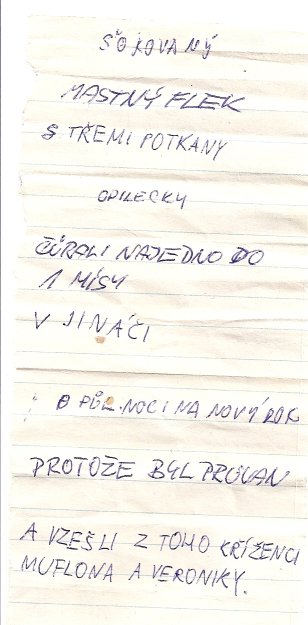 ŠOKOVANÝ
MASTNÝ FLEK
S TŘEMI POTKANY
OPILECKY
ČŮRALI NAJEDNO DO
1 MÍSY
V JINÁČÍ
O PŮLNOCI NA NOVÝ ROK
PROTOŽE BYL PRŮVAN
A VZEŠLI Z TOHO KŘÍŽENCI
MUFLONA A VERONIKY.